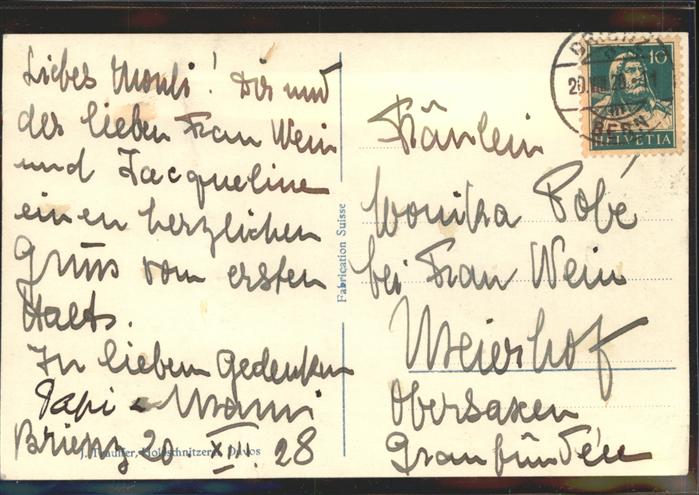 Liebes Mouli! Dir und
der lieben Frau Wein
und Jacqueline
einen herzlichen
Gruss vom ersten
Halts.
In lieben Gedenken
Papi - Mami
Brienz 20. 28
J. Holzschnitzer, Davos
Fabrication Suisse
10
HELVETIA
BRIENZ
20. 28
BERN
Fräulein
Monika Pobé
bei Frau Wein
Meierhof
Obersaxen
Graubünden